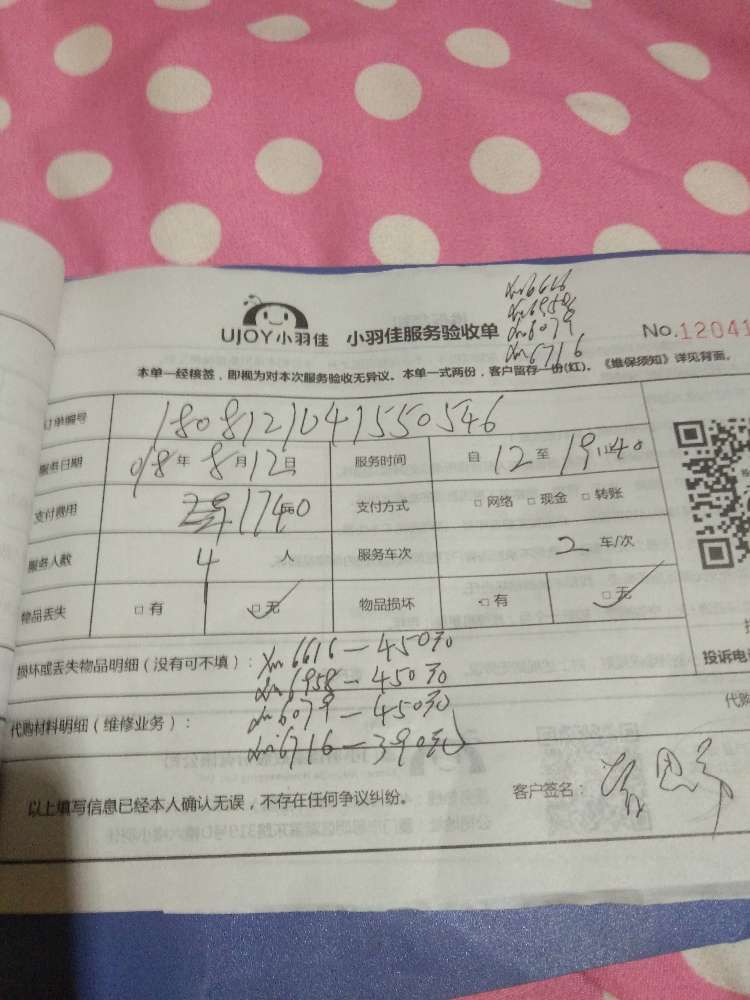 xm6616
xm6958
UJOY小羽佳 小羽佳服务验收单
xm6079
xm6716
No.12041
本单一经核签，即视为对本次服务验收无异议。本单一式两份，客户留存一份(红)。《维保须知》详见背面。
订单编号 1808121041550546
服务日期 018年8月12日 服务时间 自12至19:40
支付费用 1740 支付方式 □网络 □现金 □转账
服务人数 4 人 服务车次 2 车/次
物品丢失 □有 □无 物品损坏 □有 □无
损坏或丢失物品明细（没有可不填）：xm6616—450元
xm6958—450元
代购材料明细（维修业务）：xm6079—450元
xm6716—390元
投诉电
代购
以上填写信息已经本人确认无误，不存在任何争议纠纷。 客户签名：